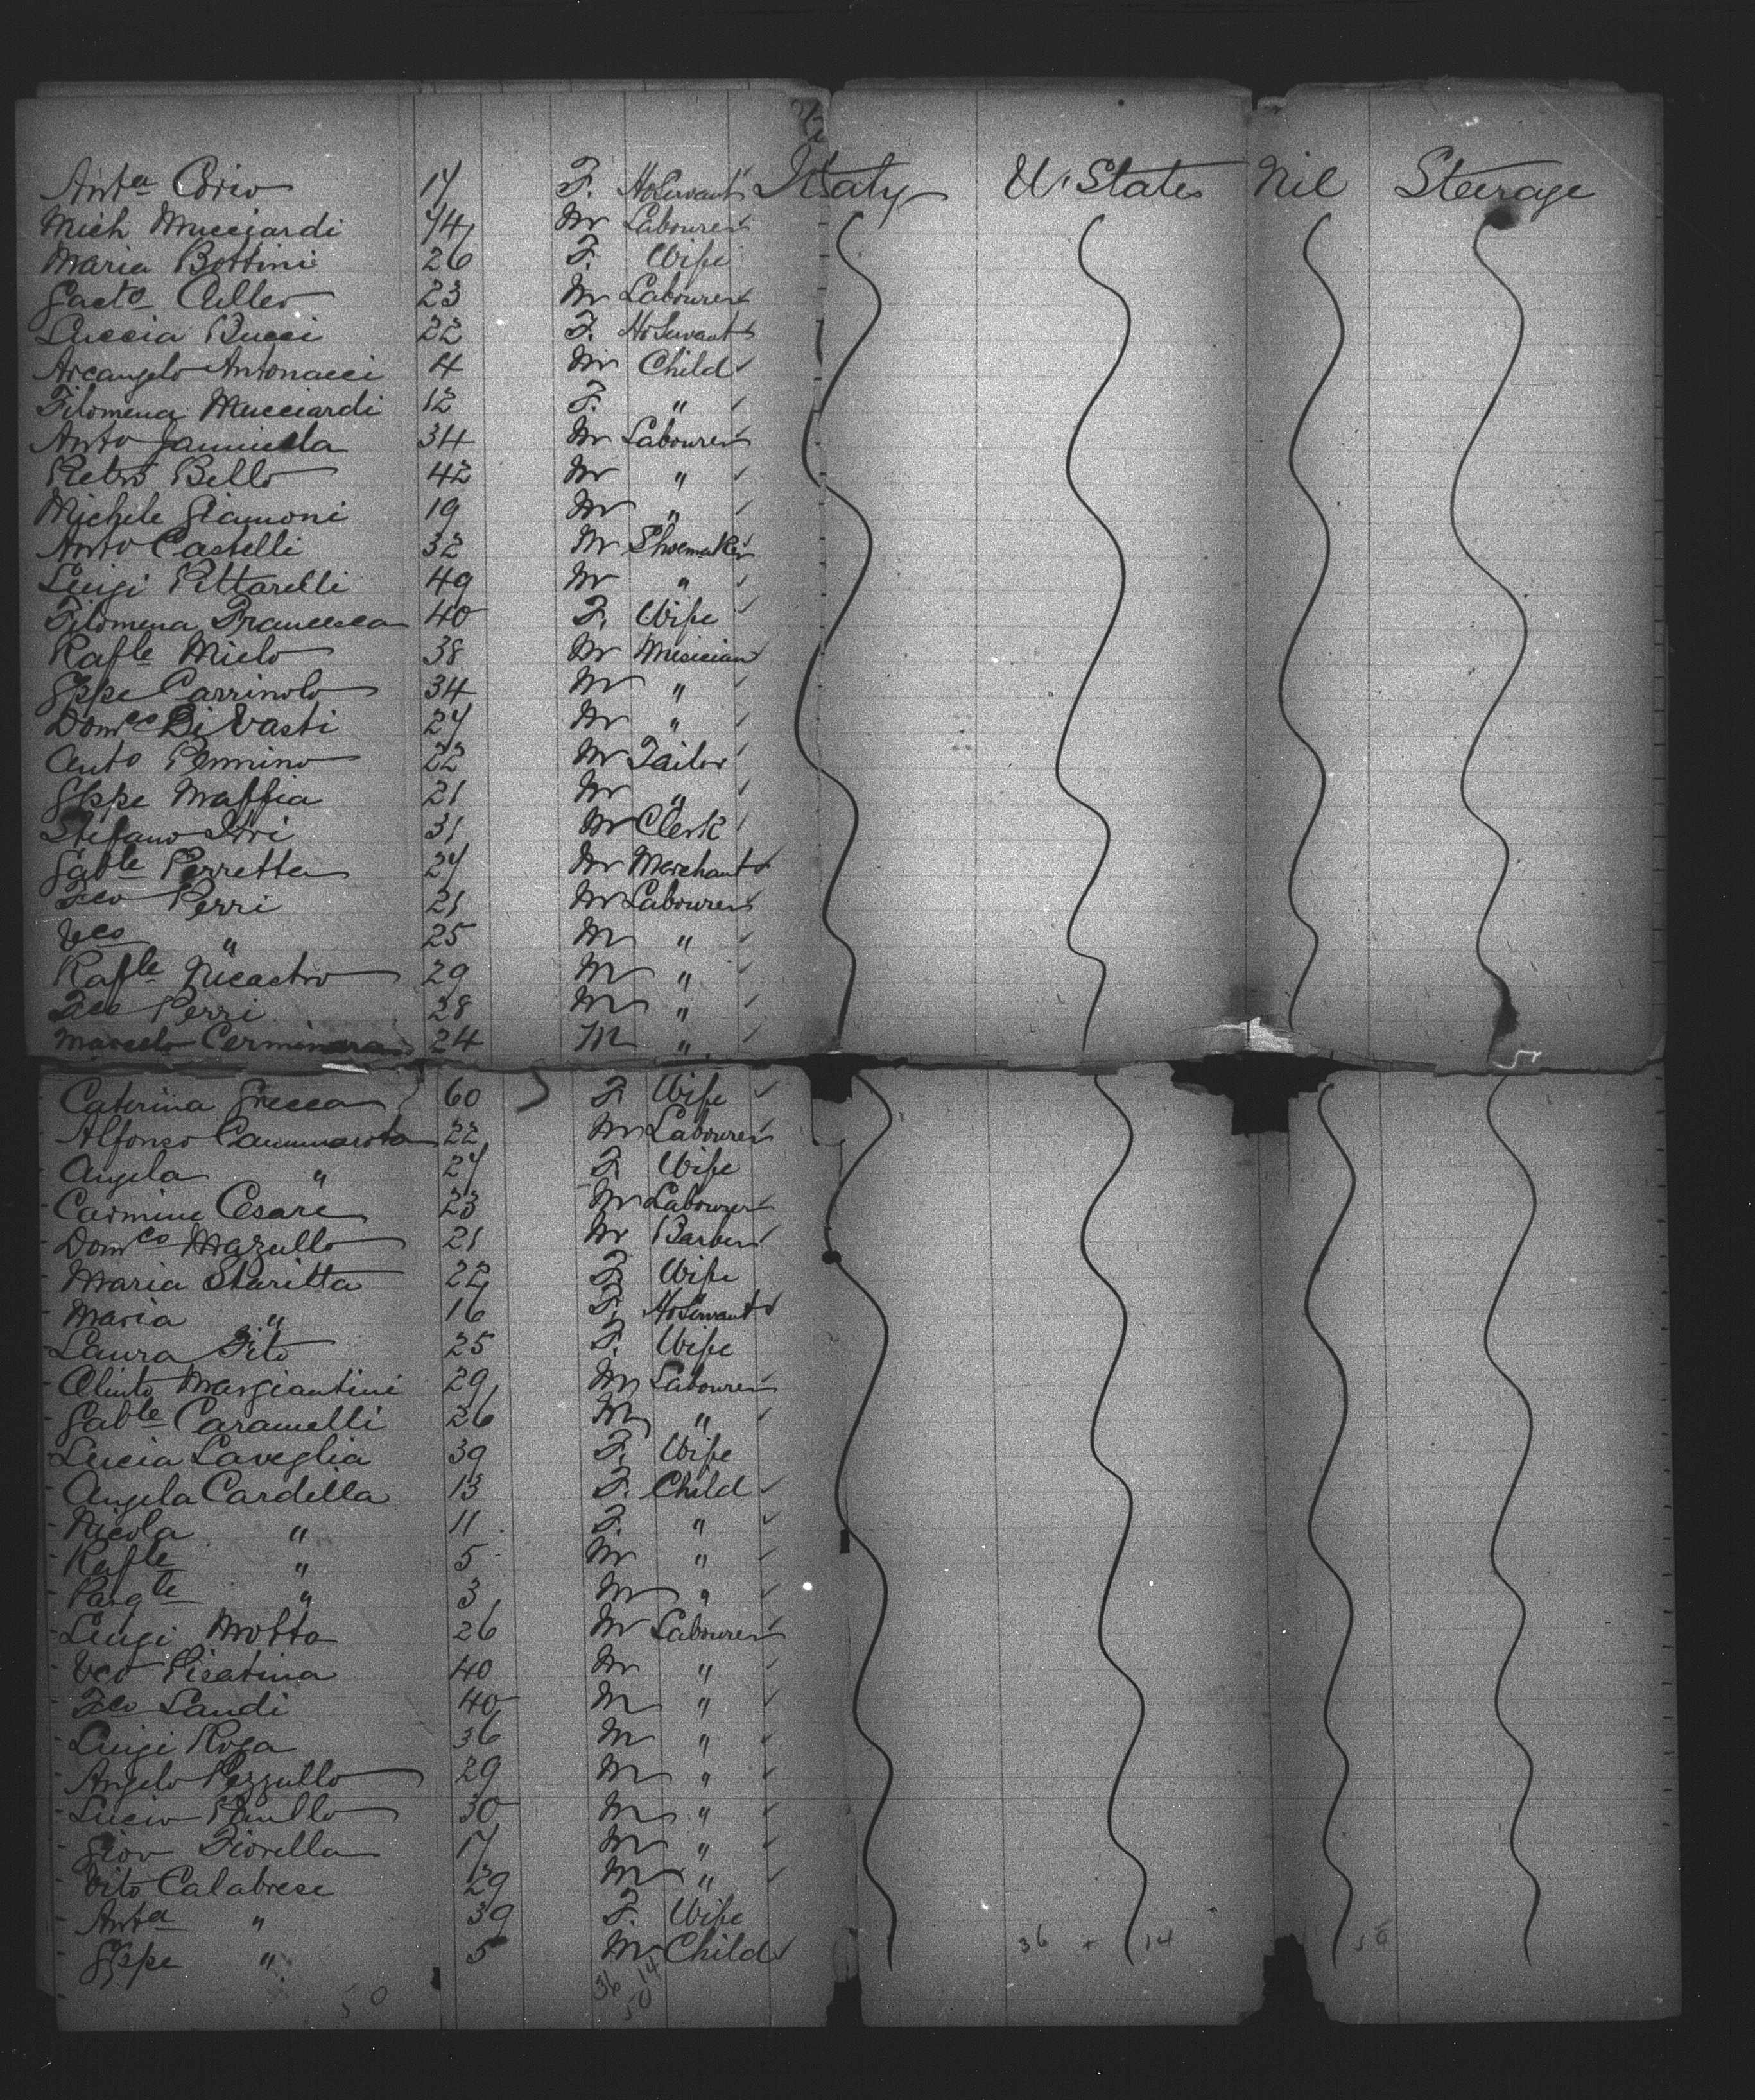 Anta Corio 17 F. HoServant Italy U. States Nil Steerage
Mich Mucciardi 44 M Labourer
Maria Bottini 26 F. Wife
Gaeto Aulleo 23 M Labourer
Luccia Bucci 22 F. HoServant
Arcangelo Antonacci 4 M Child
Filomena Mucciardi 12 F. "
Anto Janniella 34 M Labourer
Pietro Bello 42 M "
Michele Giamoni 19 M "
Anto Castelli 32 M Shoemaker
Luigi Pittarelli 49 M "
Filomena Francesca 40 F. Wife
Rafle Mielo 38 M Musician
Gppe Carrinolo 34 M "
Domco Di Vasti 27 M "
Anto Pennino 22 M Tailor
Gppe Maffia 21 M "
Stefano Itri 31 M Clerk
Gable Perretta 27 M Merchant
Fco Perri 21 M Labourer
Vco " 25 M "
Rafle Nicastro 29 M "
Fco Perri 28 M "
Marcelo Cerminara 24 M "
Caterina Grecca 60 F Wife
Alfonso Cammarota 22 M Labourer
Angela " 27 F Wife
Carmine Cesare 23 M Labourer
Domco Mazullo 21 M Barber
Maria Staritta 22 F Wife
Maria " 16 F. HoServant
Laura Tito 25 F. Wife
Olinto Margiantini 29 M Labourer
Gable Caramelli 26 M "
Lucia Laveglia 39 F. Wife
Angela Cardella 13 F. Child
Nicola " 11 F. "
Rafle " 5 M "
Pasqle " 3 M "
Luigi Motta 26 M Labourer
Vco Pisatina 40 M "
Fco Landi 40 M "
Luigi Roga 36 M "
Angelo Pezzullo 29 M "
Lucio Paullo 30 M "
Giov Fiorella 17 M "
Vito Calabrese 29 M "
Anta " 39 F. Wife
Gppe " 5 M Child
36 + 14 50
50 36 14
50